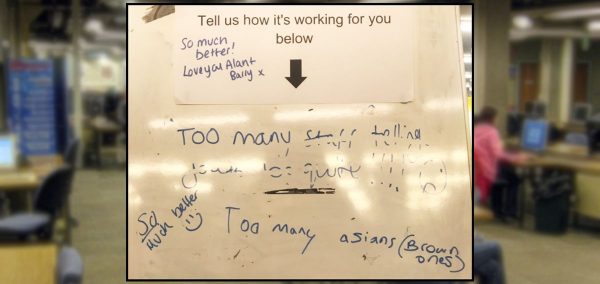 Tell us how it's working for you
below
So much
better!
Love you Alan +
Barry x
TOO many staff
So
Much better
Too many asians (Brown
ones)